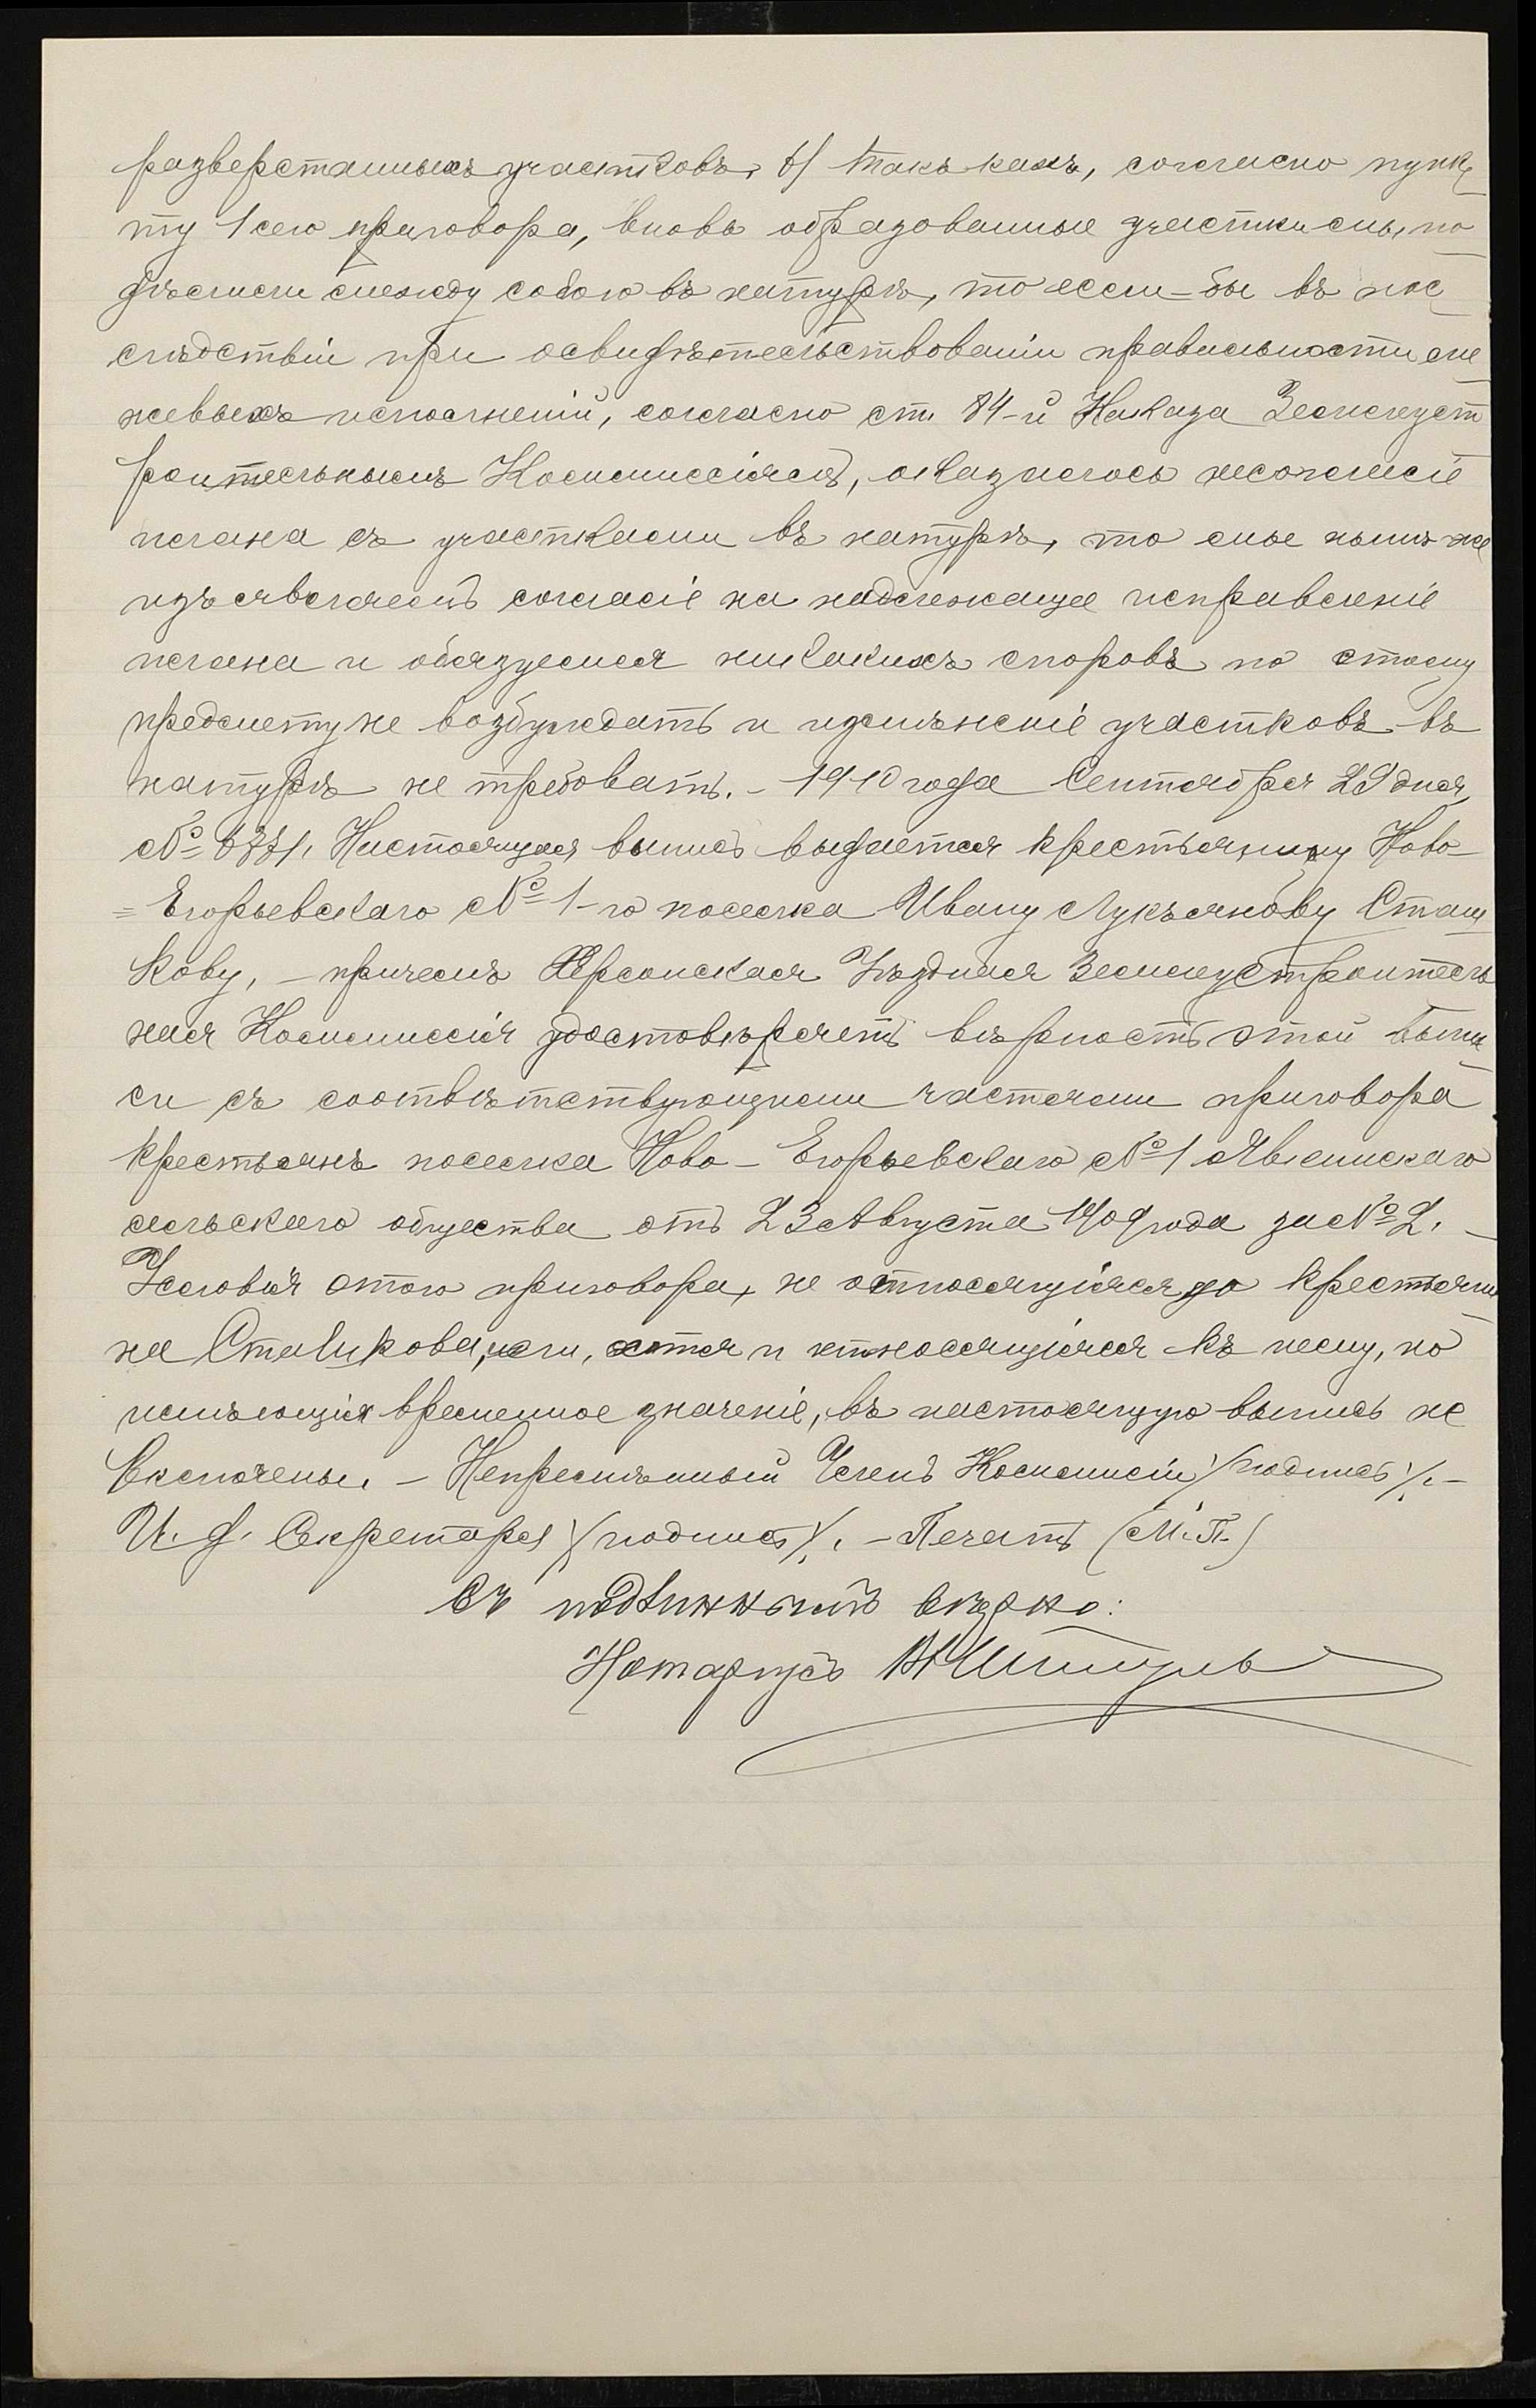 разверстанныхъ участковъ. б/ такъ какъ, согласно пунк
ту 1 сего приговора, вновь образованные участки мы по
дѣлили между собою въ натурѣ, то если-бы въ пос
слѣдствіи при освидѣтельствованіи правильности ме
жевыхъ исполненій, согласно ст. 84-й Наказа Землеуст
роительнымъ Коммиссіямъ, оказалось несогласіе
плана съ участками въ натурѣ, то мы нынѣ же
изъявляемъ согласіе на надлежащее исправленіе
плана и обязуемся никакихъ споровъ по этому
предмету не возбуждать и измѣненіе участковъ въ
натурѣ не требовать. – 1910 года Сентября 29 дня,
№ Настоящая выпись выдается крестьянину Ново-
= Егорьевскаго № 1-го поселка Ивану Лукьянову
кову, – причемъ Херсонская Уѣздная Землеустроитель
ная Коммиссія удостовѣряетъ вѣрность этой выпи
си съ соотвѣтствующими частями приговора
крестьянъ поселка Ново-Егорьевскаго № 1 Явкинскаго
сельскаго общества отъ 23 Августа 1909 года за № 2. –
Условія этого приговора, не относящіяся до крестьяни
на или, хотя и относящіяся къ нему, но
имѣющія временное значеніе, въ настоящую выпись не
включены. – Непремѣнный Членъ Коммиссіи /подпись/. –
И. д. Секретаря /подпись/. – Печать (М.П.)
Съ подлиннымъ вѣрно:
Нотаріусъ